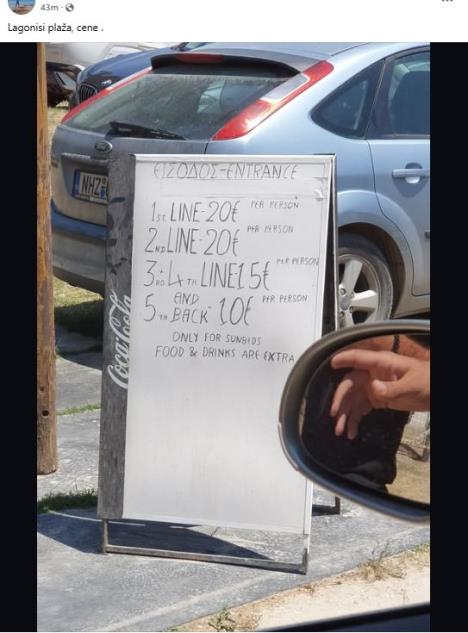 43m
Lagonisi plaža, cene .
NHZ
ΕΙΣΟΔΟΣ-ENTRANCE
1ST LINE-20€ PER PERSON
2ND LINE-20€ PER PERSON
3RD + 4TH LINE 15€ PER PERSON
5TH AND BACK- 10€ PER PERSON
ONLY FOR SUNBEDS
FOOD & DRINKS ARE EXTRA
Coca-Cola